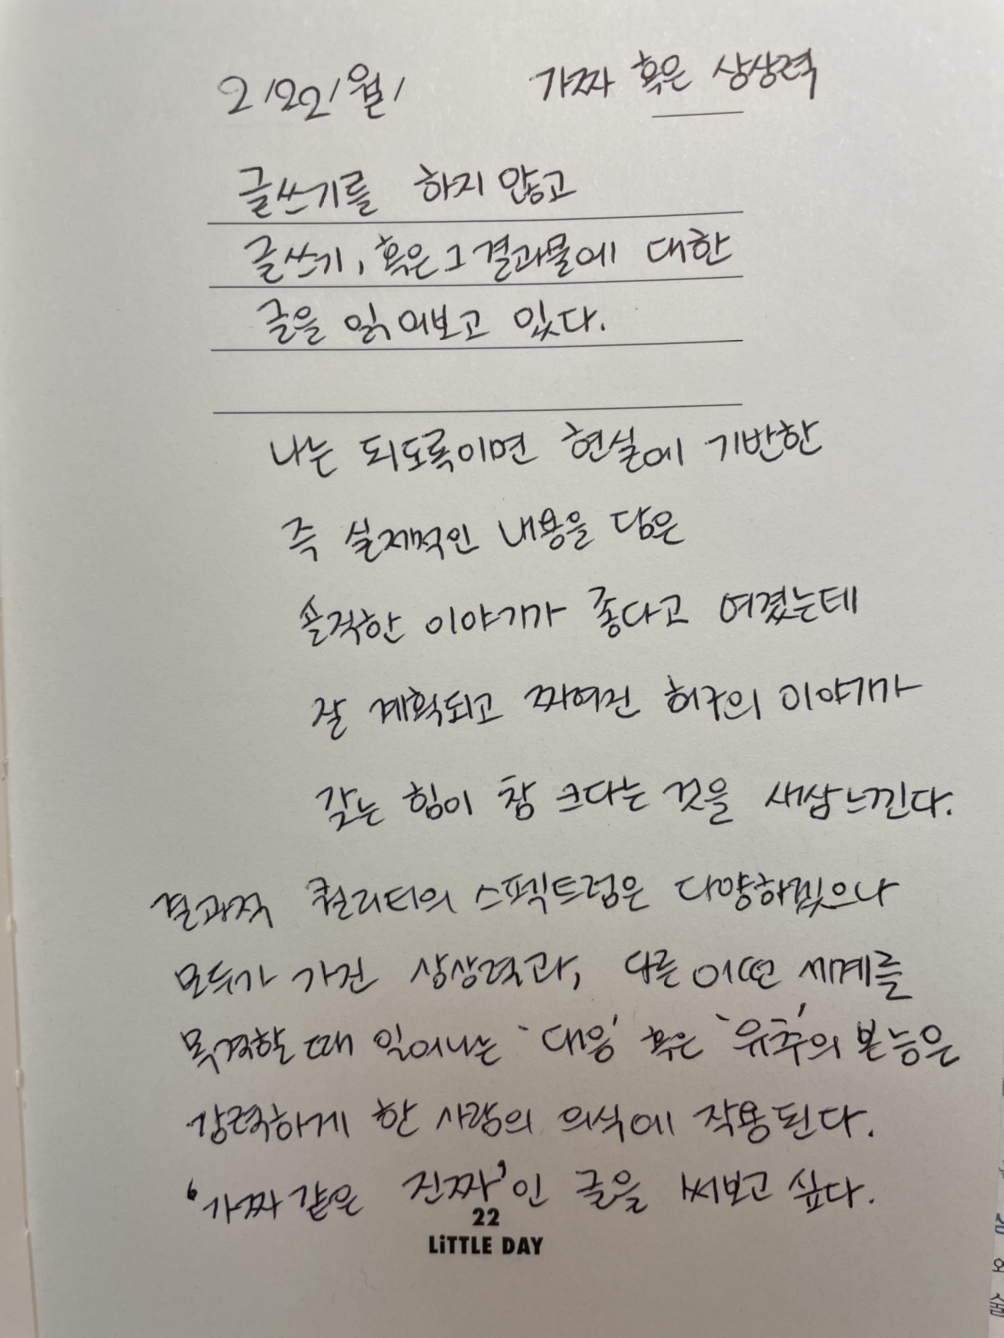 2/22/월/ 가짜 혹은 상상력
글쓰기를 하지 않고
글쓰기, 혹은 그 결과물에 대한
글을 읽어보고 있다.
나는 되도록이면 현실에 기반한
즉 실제적인 내용을 담은
솔직한 이야기가 좋다고 여겼는데
잘 계획되고 짜여진 허구의 이야기가
갖는 힘이 참 크다는 것을 새삼 느낀다.
결과적 퀄리티의 스펙트럼은 다양하겠으나
모두가 가진 상상력과, 다른 어떤 세계를
목격할 때 일어나는 '대응' 혹은 '유추'의 본능은
강력하게 한 사람의 의식에 작용된다.
'가짜 같은 진짜'인 글을 써보고 싶다.
22
LiTTLE DAY